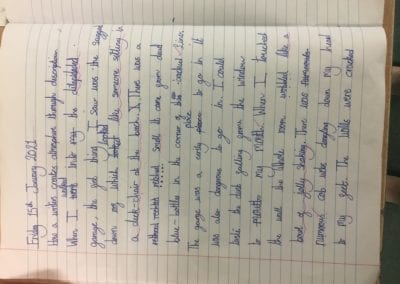 Friday 15th January 2021
How a writer creates atmosphere through description.
When I walked into my the dilapidated
garage, the first thing I saw was the
down rug which looked like someone setting in
a deck-chair at the beach. There was a
rotted smell it came from dead
blue-bottle in the corner of
The garage was a place to go in. It
was also dangerous to go in. I could
taste the dust falling from the window
to my mouth. When I touched
the wall the whole room wobbled like a
bowl of jelly shaking. There was
numerous cob webs dangling down my head
to my feet. The walls were cracked